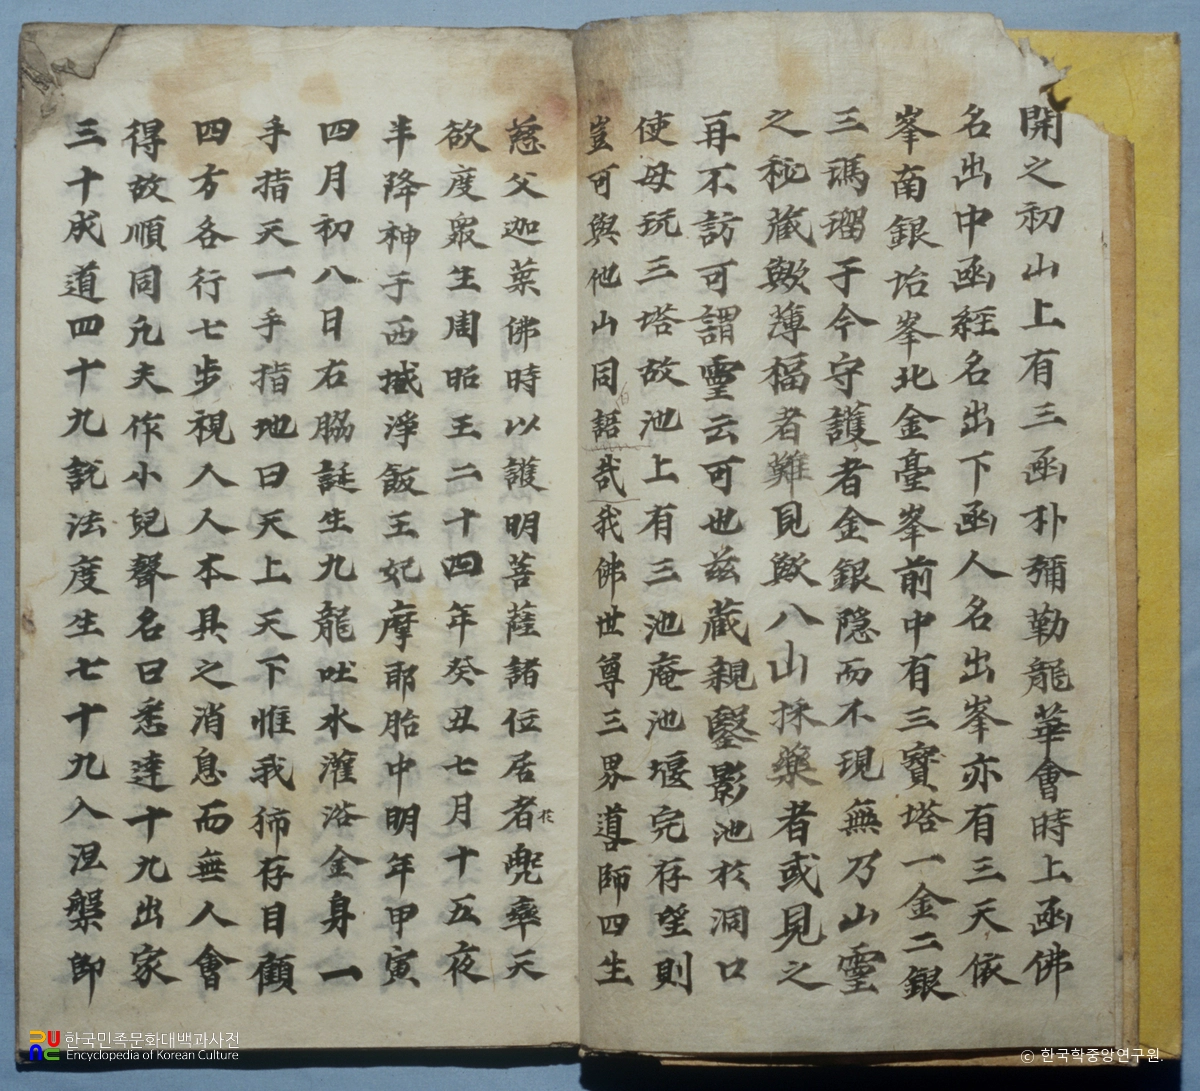 開之初山上有三函朴彌勒龍華會時上函佛
名出中函經名出下函人名出峯亦有三天依
峯南銀㙵峯北金臺峯前中有三寶塔一金二銀
三瑪瑠于今守護者金銀隐而不現無乃山靈
之秘藏歟薄福者難見歟八山採藥者或見之
再不訪可謂靈云可也兹藏親鑿影池於洞口
使母玩三塔故池上有三池庵池堰完存望則
豈可與他山同語哉我佛世尊三界導師四生
慈父迦葉佛時以護明菩薩諸位居者兜率天
於
欲度衆生周昭王二十四年癸丑七月十五夜
半降神于西域淨飯王妃摩耶胎中明年甲寅
四月初八日右脇誕生九龍吐水灌浴金身一
手指天一手指地曰天上天下惟我㷌存目顧
四方各行七步視人人本具之消息而無人會
得故順同凡夫作小兒聲名曰悉達十九出家
三十成道四十九說法度生七十九入涅槃即
한국민족문화대백과사전
Encyclopedia of Korean Culture
© 한국학중앙연구원.